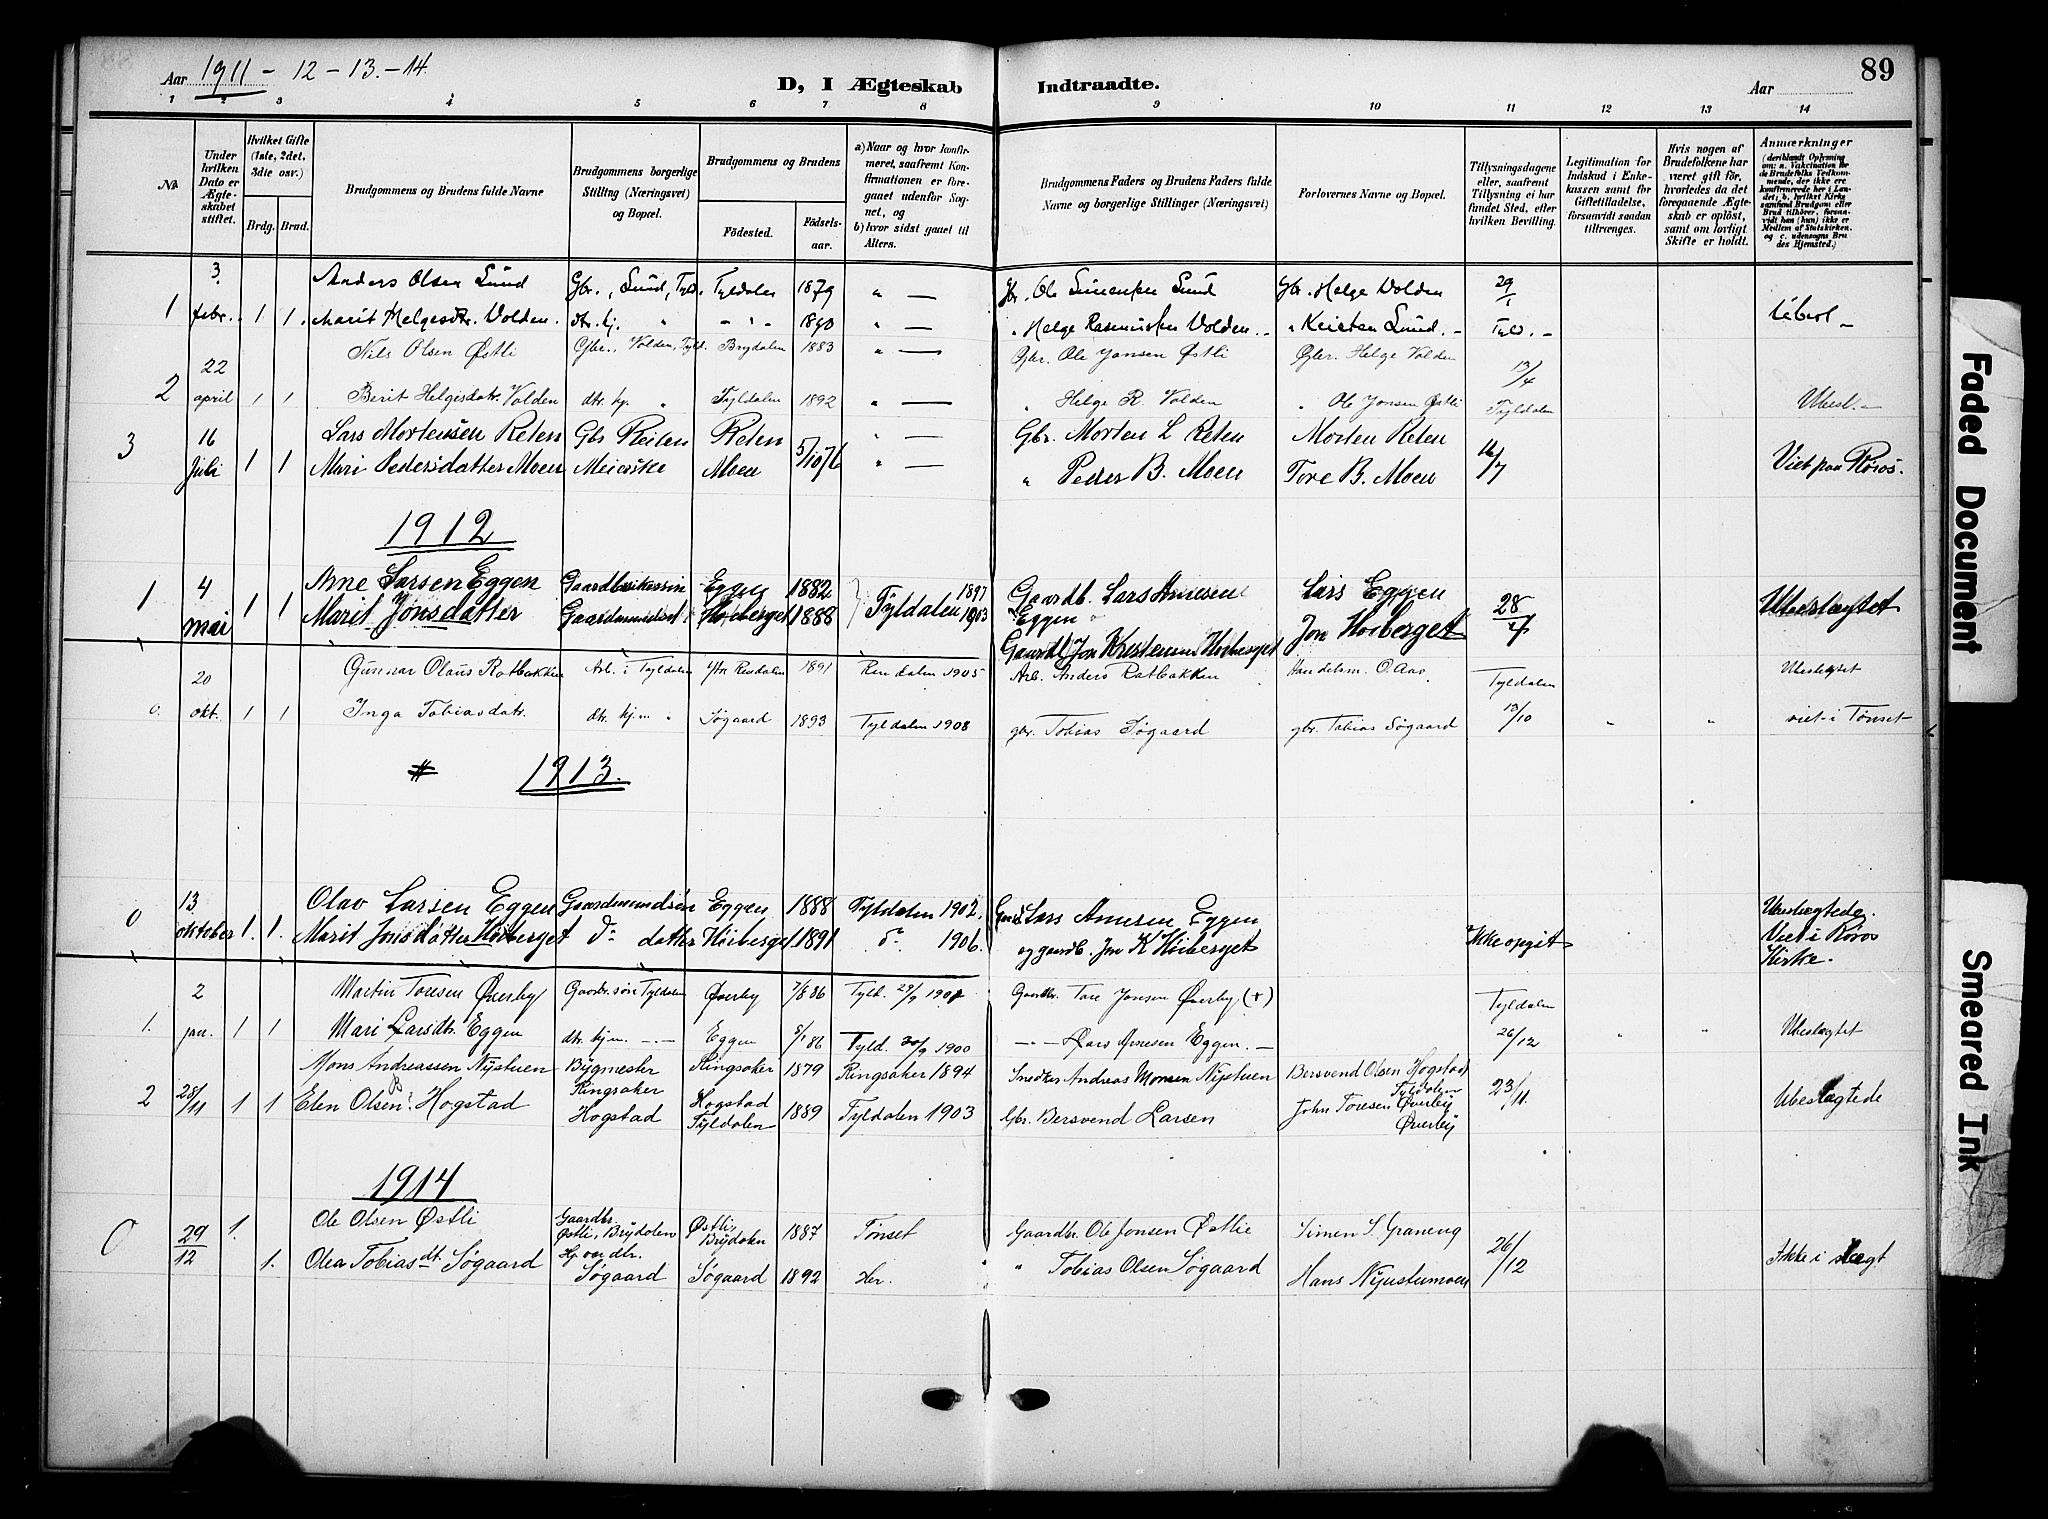 Aar 1911 - 12 - 13. - 14.
D, I Ægteskab Indtraadte.
Aar 89
1 2 3 4 5 6 7 8 9 10 11 12 13 14
№
Under hvilken Dato er Ægteskabet stiftet.
Hvilket Gifte (1ste, 2det, 3die osv.)
Brdg. Brud.
Brudgommens og Brudens fulde Navne
Brudgommens borgerlige Stilling (Næringsvei) og Bopæl.
Brudgommens og Brudens
Födested. Födselsaar.
a) Naar og hvor konfirmeret, saafremt Konfirmationen er foregaaet udenfor Sognet, og
b) hvor sidst gaaet til Alters.
Brudgommens Faders og Brudens Faders fulde Navne og borgerlige Stillinger (Næringsvei)
Forlovernes Navne og Bopæl.
Tillysningsdagene eller, saafremt Tillysning ei har fundet Sted, efter hvilken Bevilling.
Legitimation for Indskud i Enkekassen samt for Giftetilladelse, forsaavidt saadan tiltrænges.
Hvis nogen af Brudefolkene har været gift för, hvorledes da det foregaaende Ægteskab er oplöst, samt om lovligt Skifte er holdt.
Anmærkninger
(deriblandt Oplysning om: a. Vakcination for de Brudefolks Vedkommende, der ikke ere konfirmerede her i Landet; b. hvilket Kirkesamfund Brudgom eller Brud tilhörer, forsaavidt han (hun) ikke er Medlem af Statskirken, og c. udensogns Brudes Hjemsted.)
3. Anders Olsen Lund Gbr., Lund, Tyld. Tyldalen 1879 " — Gbr. Ole Simensen Lund Gbr. Helge Volden 29/1
1 febr. 1 1. Marit Helgesdtr. Volden. dtr. hj. " - " - 1890 " — " Helge Rasmussen Volden. - " Kristen Lund. - Tyld. - Ubesl -
22 Nils Olsen Østli Gbr., Volden, Tyld. Brydalen 1883 " — Gbr. Ole Jonsen Østli Gbr. Helge Volden 13/4
2 april 1 1 Berit Helgesdatr. Volden dtr. hj. " Tyldalen 1892 " — " Helge R. Volden " Ole Jonsen Østli Tyldalen Ubesl. -
16 Lars Mortensen Reten Gbs Reiten Reten " — Gbr. Morten L Reten Morten Reten 16/7
3 Juli 1 1 Mari Pedersdatter Moen Meierske Moen 5/10 76 " — " Peder B. Moen Tore B. Moen Viet paa Røros.
1912
4 Arne Larsen Eggen Eggen 1882 1897 Gaardb. Lars Arnesen Lars Eggen 28/4
1 mai 1 1 Marit Jonsdatter Høiberget 1888 Tyldalen 1903 Eggen Jon Høiberget Ubeslægtet
Gaardb. Jon Kristensen Høiberget
20 Gunnar Olaus Ratbakken Arb. i Tyldalen Ytr. Rendalen 1891 Rendalen 1905 Arb. Anders Ratbakken Handelsm. O. Aas Tyldalen Ubeslegtet
0. okt. 1 1 Inga Tobiasdatr. dtr. hjm. " Søgaard 1893 Tyldalen 1908 gbr. Tobias Søgaard gbr. Tobias Søgaard 13/10 " " viet i Tønset
# 1913.
13 Olav Larsen Eggen Eggen 1888 Tyldalen 1902. Gaardb Lars Arnesen Eggen Ubeslægtede.
0 oktober 1. 1. Marit Jonsdatter Høiberget do datter Høiberget 1891 do 1906. og gaardb. Jon K Høiberget Ikke opgit Viet i Røros Kirke.
2 Martin Toresen Øverby Gaardbr. søn Tyldalen Øverby 7/8 86 Tyld. 27/9 1901 Gaardbr. Tore Jonsen Øverby (+) Tyldalen
1. jan. 1 1 Mari Larsdtr. Eggen dtr. hjm. - - - Eggen 5/1 86 Tyld. 30/9 1900 - - - Lars Arnesen Eggen. - 26/12 " " Ubeslegtet
Mons Andreassen Nystuen Bygmester Ringsaker Ringsaker 1879 Ringsaker 1894 Snedker Andreas Monsen Nystuen Bersvend Olsen Hogstad Tyldalen 23/11.
2 28/11 1 1 Elen Olsen Hogstad Hogstad Hogstad Tyldalen 1889 Tyldalen 1903 Gbr. Bersvend Larsen John Toresen Øverby Øverby Ubeslægtede
1914
0 29/12 1. Ole Olsen Østli Gaardbr. Østli, Brydalen Østli, Brydalen 1887 Tønset Gaardbr Ole Jonsen Østlie Simen S. Graneng 26/12
1. Olea Tobiasdt. Søgaard Hjvær. dtr. Søgaard Søgaard 1892 Her. " Tobias Olsen Søgaard Hans Nyustumoen Ikke i slegt
Faded Document
Smeared Ink